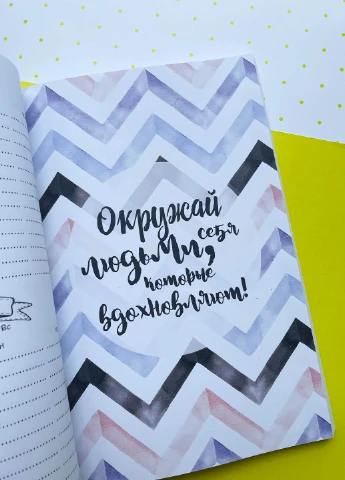 Окружай
себя
людьми,
которые
вдохновляют!
ВС
Н